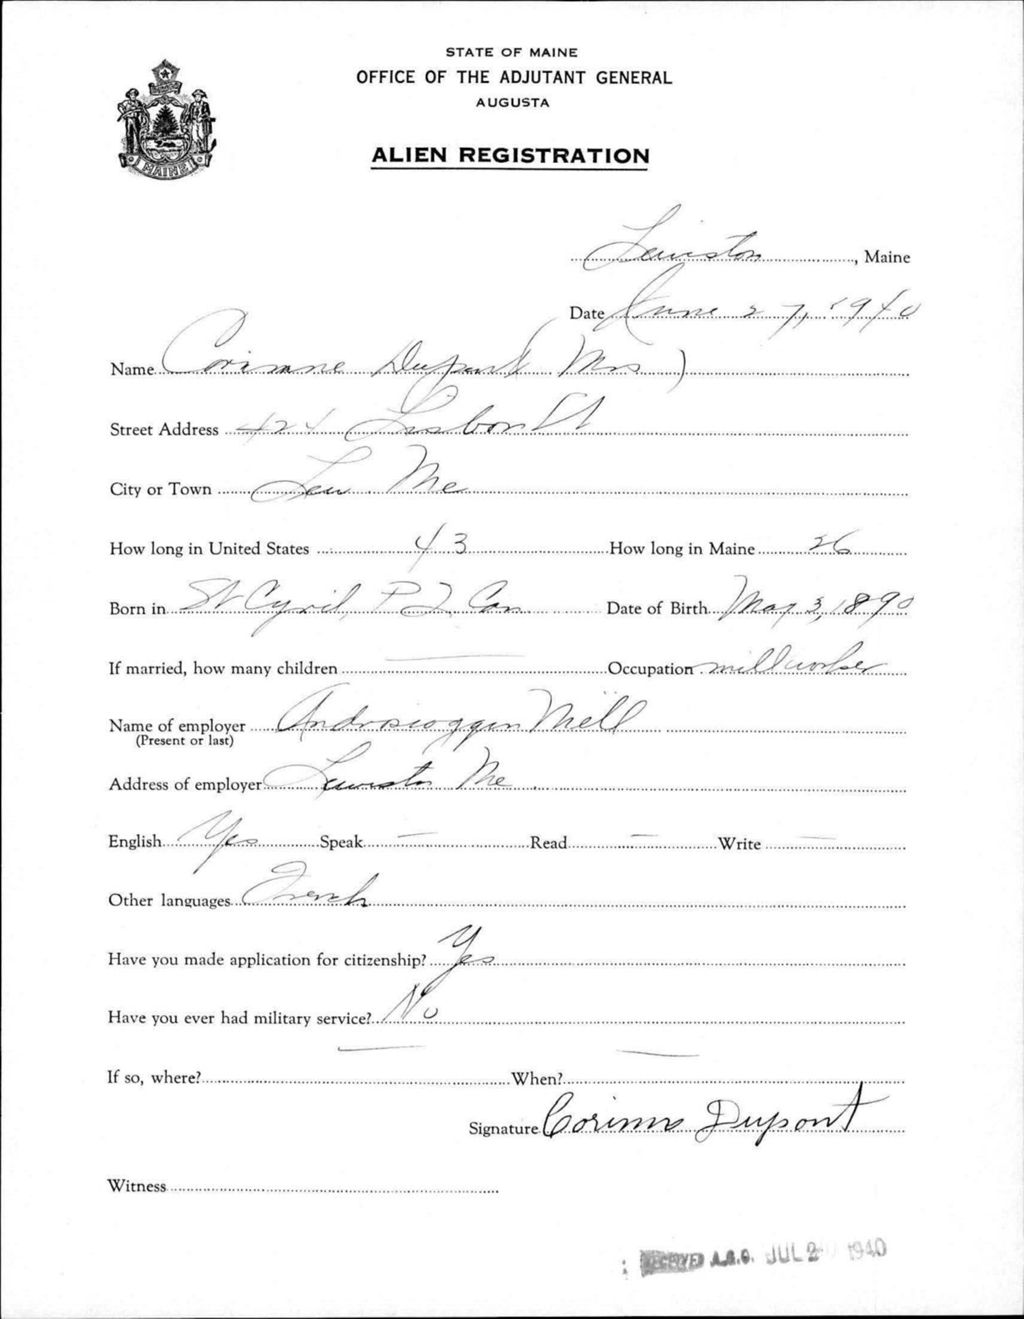 STATE OF MAINE
OFFICE OF THE ADJUTANT GENERAL
AUGUSTA
ALIEN REGISTRATION
MAINE
Lewiston, Maine
Date June 27, 1940
Name Corinne Dupont (Mrs)
Street Address 424 Lisbon St
City or Town Lew. Me
How long in United States 43 How long in Maine 26
Born in St Cyril, P Q, Can Date of Birth May 3, 1890
If married, how many children — Occupation millworker
Name of employer Androscoggin Mill
(Present or last)
Address of employer Lewiston Me.
English Yes Speak — Read — Write —
Other languages French
Have you made application for citizenship? Yes
Have you ever had military service? No
If so, where? — When? —
Signature Corinne Dupont
Witness
RECEIVED A.G.O. JUL 2 1940